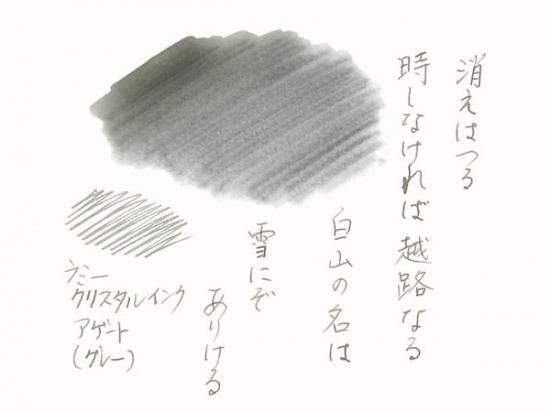 消えはつる
時しなければ越路なる
白山の名は
雪にぞ
ありける
ラミー
クリスタルインク
アゲート
(グレー)